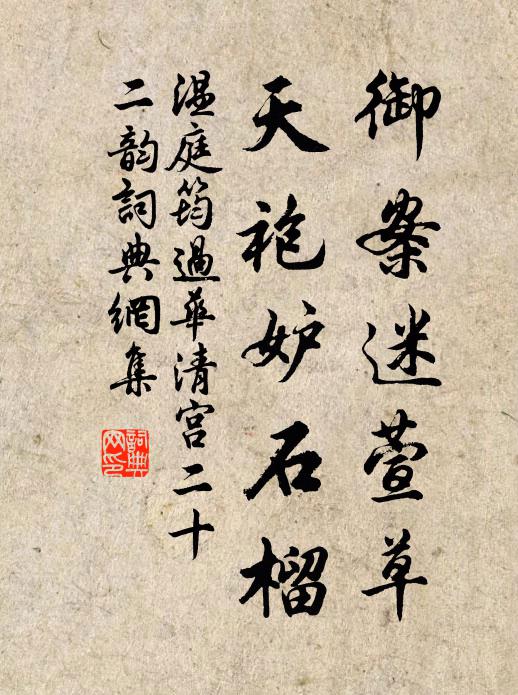 御案迷萱草
天袍妒石榴
温庭筠過華清宮二十
二韵詞典網集
詞典網印